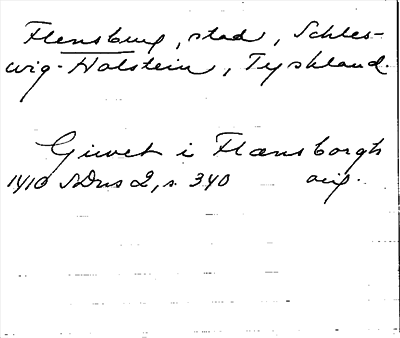 Flensburg, stad, Schles-
wig-Holstein, Tyskland.
Giwet i Flænsborgh
1410 SDns 2, s. 340 orig.